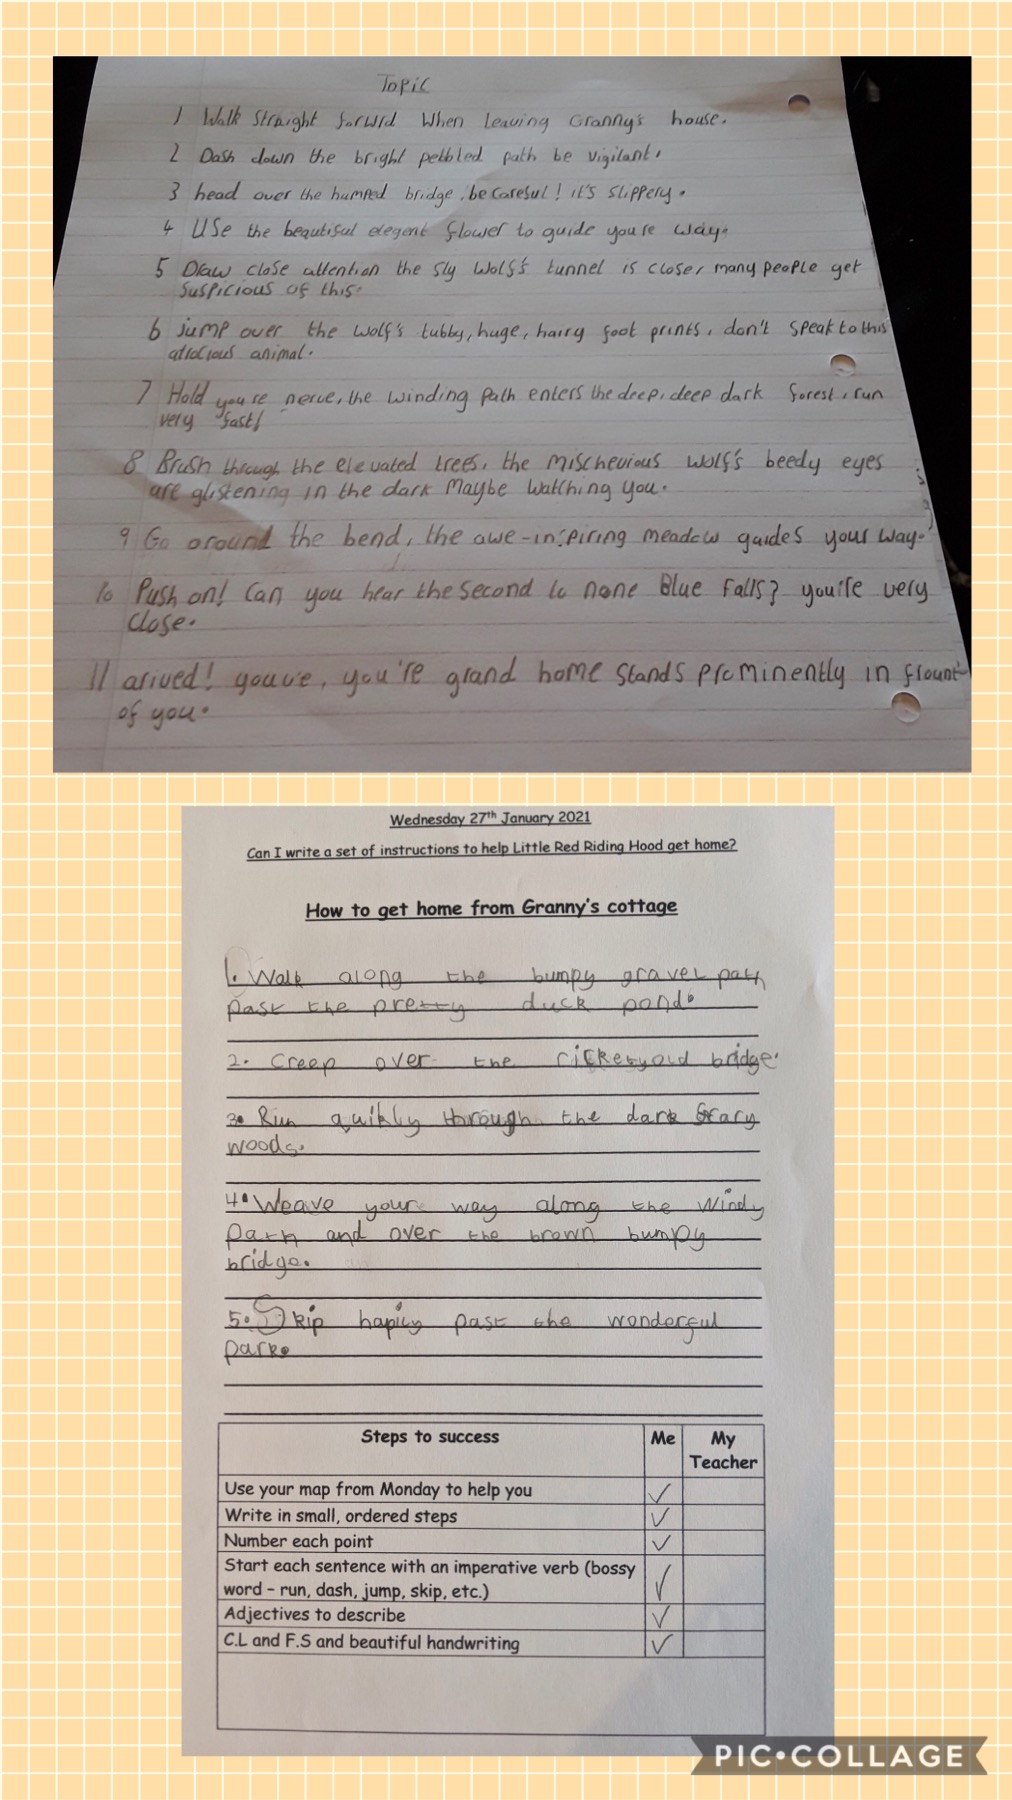 Topic
1 Walk Straight forwrd When Leaving Granny's house.
2 Dash down the bright pebbled path be vigilant.
3 head over the humped bridge, be careful! it's slippery.
4 Use the beautiful elegent flower to guide you're way.
5 Draw close attention the sly Wolf's tunnel is close, many people get
suspicious of this.
6 jump over the wolf's tubby, huge, hairy foot prints, don't speak to this
animal.
7 Hold you're nerve, the winding path enters the deep, deep dark forest, run
very fast!
8 Brush through the elevated trees, the mischevious wolf's beedy eyes
are glistening in the dark Maybe Watching you.
9 Go around the bend, the awe-inspiring meadow guides your way.
10 Push on! Can you hear the second to none Blue Falls? you're very
close.
11 arived! youv'e, you're grand home stands prominently in frount
of you.
Wednesday 27th January 2021
Can I write a set of instructions to help Little Red Riding Hood get home?
How to get home from Granny's cottage
1. Walk along the bumpy gravel path
past the pretty duck pond.
2. Creep over the ricketyold bridge.
3. Run quikly through the dark scary
woods.
4. Weave your way along the windy
path and over the brown bumpy
bridge.
5. Skip hapily past the wonderful
park.
Steps to success Me My
Teacher
Use your map from Monday to help you ✓
Write in small, ordered steps ✓
Number each point ✓
Start each sentence with an imperative verb (bossy
word – run, dash, jump, skip, etc.) ✓
Adjectives to describe ✓
C.L and F.S and beautiful handwriting ✓
PIC•COLLAGE